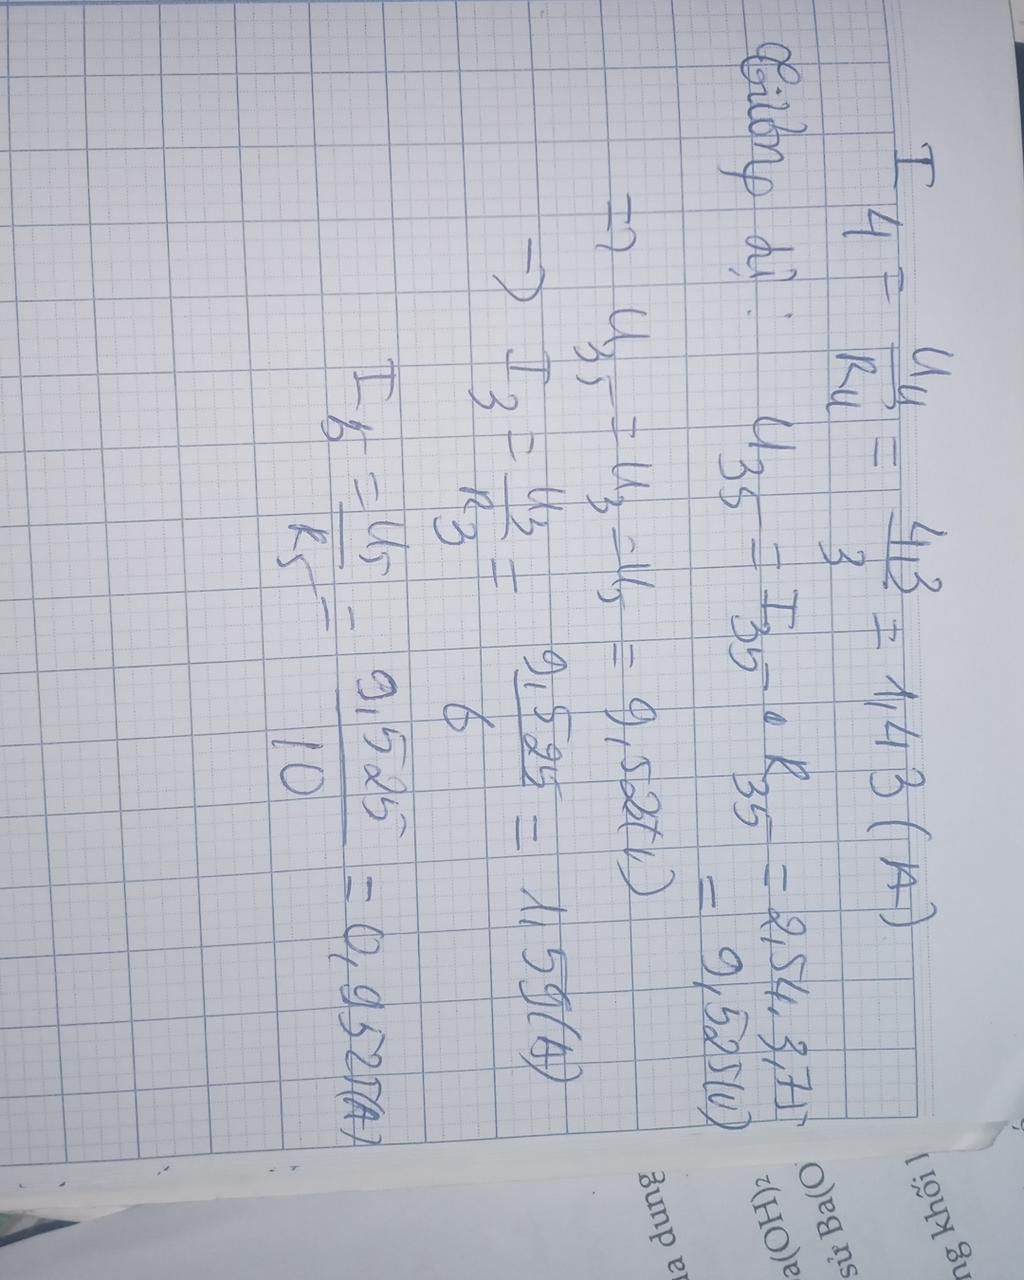 I4 = U4/R4 = 4,3/3 = 1,43 (A)
: U35 = I35 . R35 = 2,54.3,75
= 9,525(V)
=> U35 = U3 = U5 = 9,525(V)
-> I3 = U3/R3 = 9,525/6 = 1,59(A)
I5 = U5/R5 = 9,525/10 = 0,9525(A)
ng khối l
sử Ba(O
a(OH)₂
ua dung